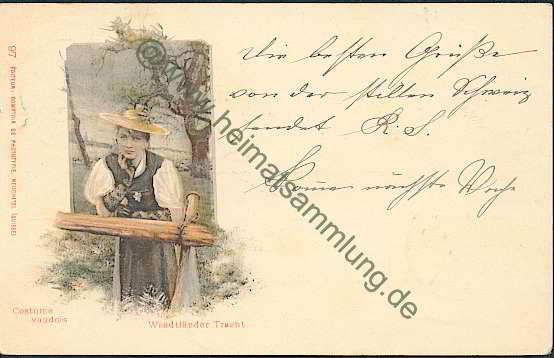 Die besten Grüße
von der stillen Schweiz
sendet R. S.
Komme nächste Woche
97 ÉDITEUR: COMPTOIR DE PHOTOTYPIE, NEUCHATEL (SUISSE)
Costume
vaudois
Waadtländer Tracht.
©www.heimatsammlung.de